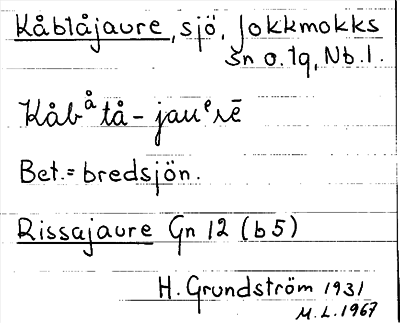 Kåbtåjaure, sjö, Jokkmokks
sn o. tq, Nb. l.
Kåbåtå-jauᵉrē
Bet. = bredsjön.
Rissajaure Gn 12 (b5)
H. Grundström 1931
M.L. 1967